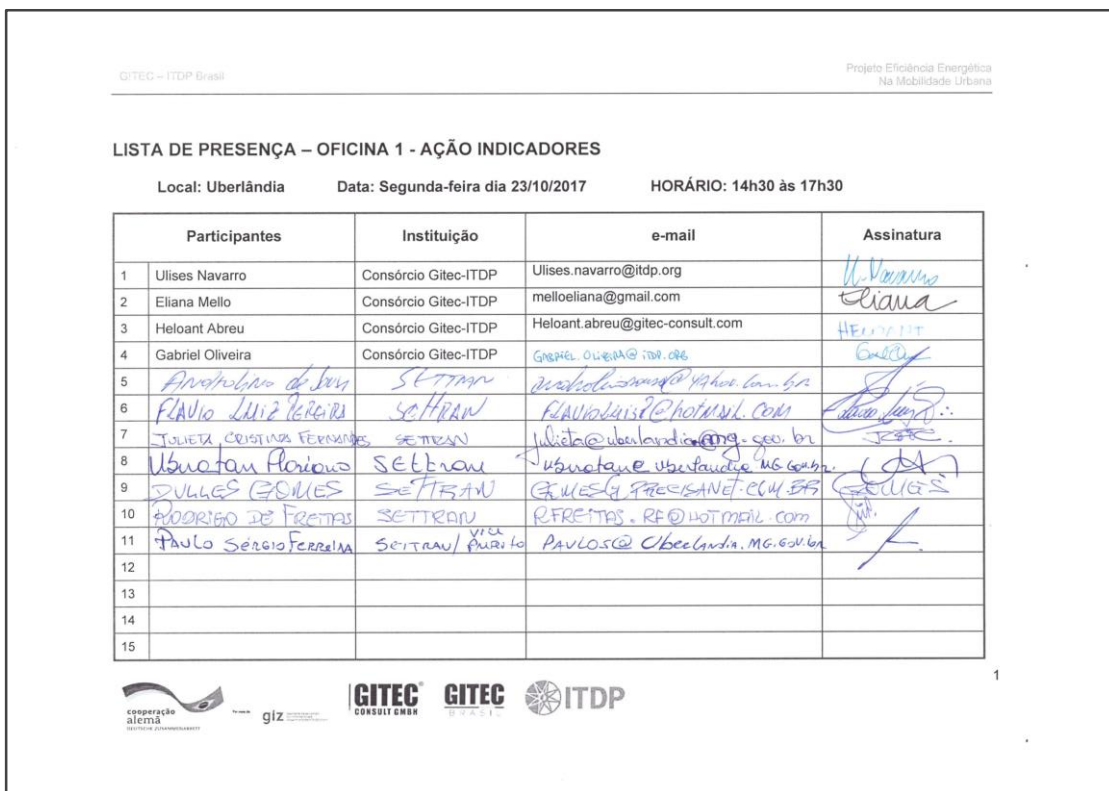 GITEC – ITDP Brasil
Projeto Eficiência Energética
Na Mobilidade Urbana
LISTA DE PRESENÇA – OFICINA 1 - AÇÃO INDICADORES
Local: Uberlândia Data: Segunda-feira dia 23/10/2017 HORÁRIO: 14h30 às 17h30
Participantes Instituição e-mail Assinatura
1 Ulises Navarro Consórcio Gitec-ITDP Ulises.navarro@itdp.org U. Navarro
2 Eliana Mello Consórcio Gitec-ITDP melloeliana@gmail.com Eliana
3 Heloant Abreu Consórcio Gitec-ITDP Heloant.abreu@gitec-consult.com HELOANT
4 Gabriel Oliveira Consórcio Gitec-ITDP GABRIEL.OLIVEIRA@ITDP.ORG
5 SETTRAN
6 FLAVIO LUIZ PEREIRA SETTRAN
7 JULIETA CRISTINA FERNANDES SETTRAN julieta@uberlandia.mg.gov.br
8 Ubiratan Floriano SETTRAN
9 DULLES GOMES SETTRAN GOMES@PRECISANET.COM.BR GOMES
10 RODRIGO DE FREITAS SETTRAN RFREITAS.RF@HOTMAIL.COM
11 PAULO SÉRGIO FERREIRA SETTRAN/ VICE PREFEITO PAULOS@Uberlandia.MG.GOV.br
12
13
14
15
1
cooperação
alemã
DEUTSCHE ZUSAMMENARBEIT
giz
GITEC
CONSULT GMBH
GITEC
BRASIL
ITDP